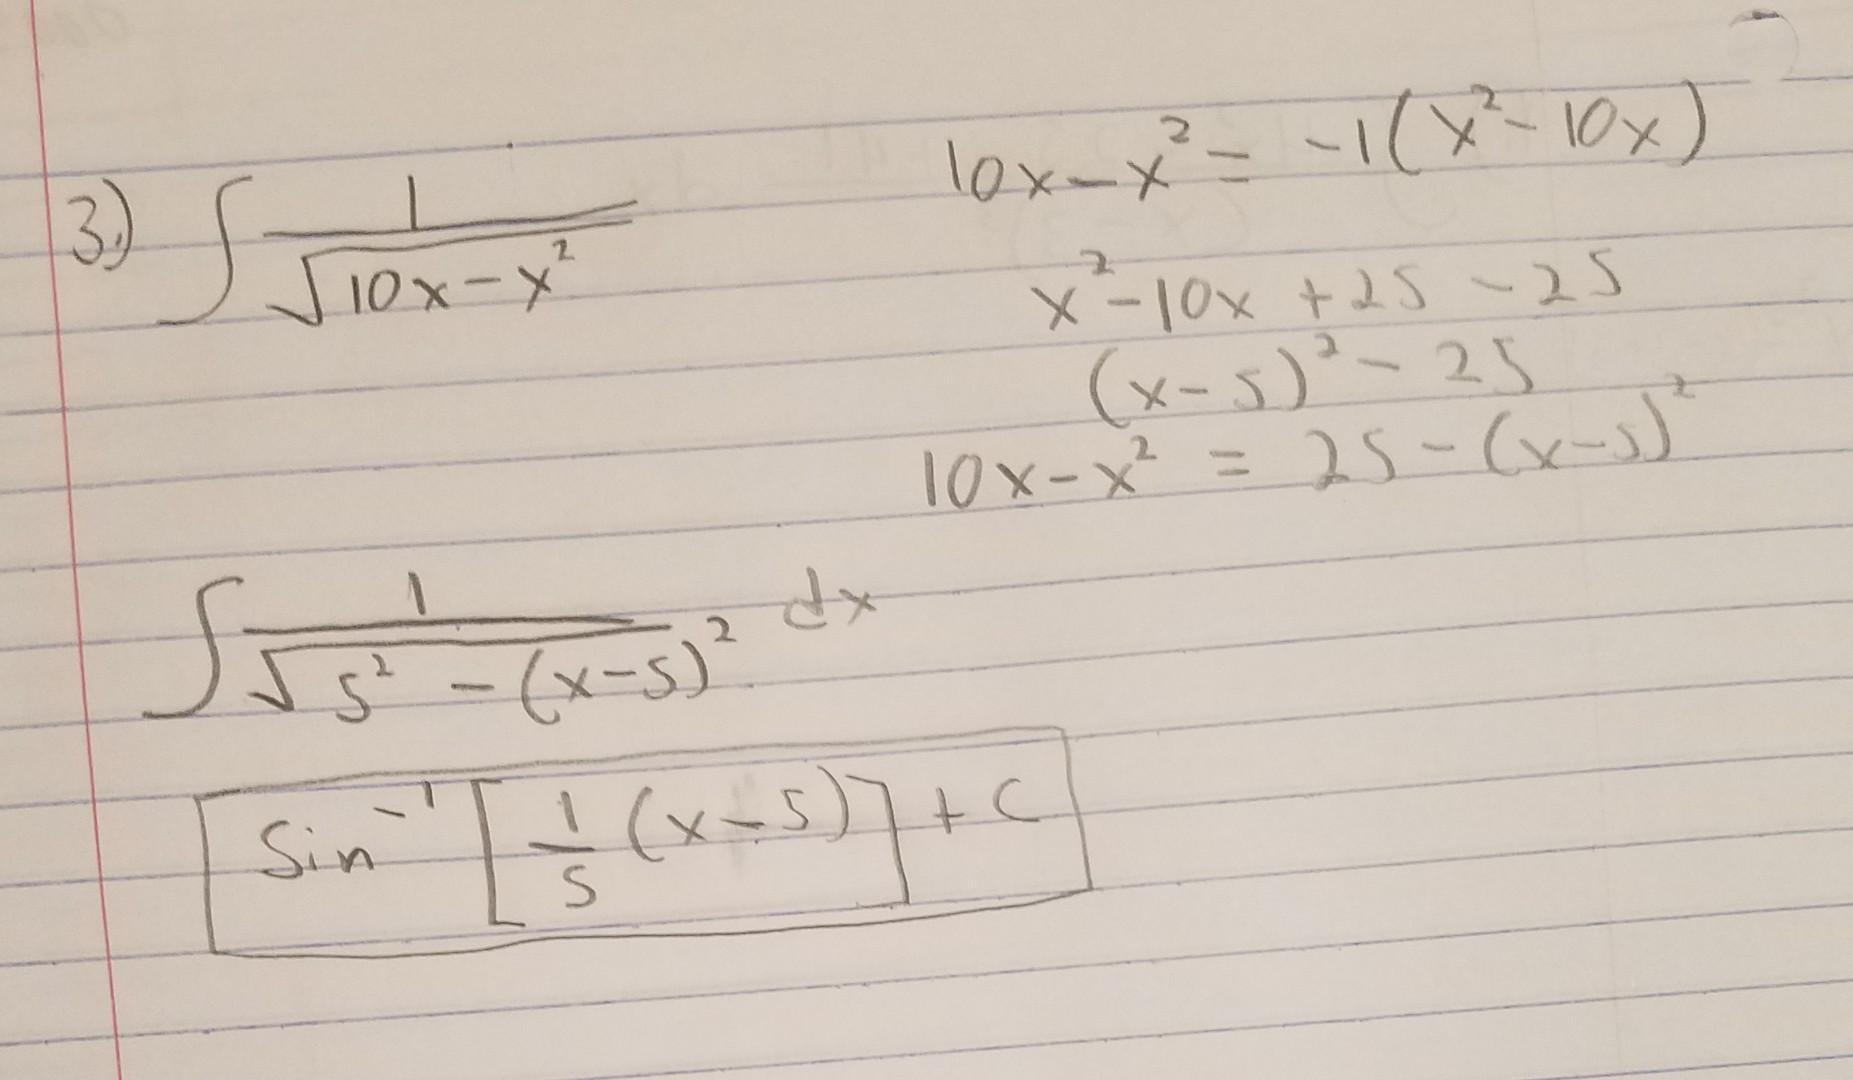 3.) ∫ 1/√(10x-x²)
10x-x² = -1(x²-10x)
x²-10x+25-25
(x-5)²-25
10x-x² = 25-(x-5)²
∫ 1/√(5²-(x-5)²) dx
Sin⁻¹[1/5(x-5)]+C